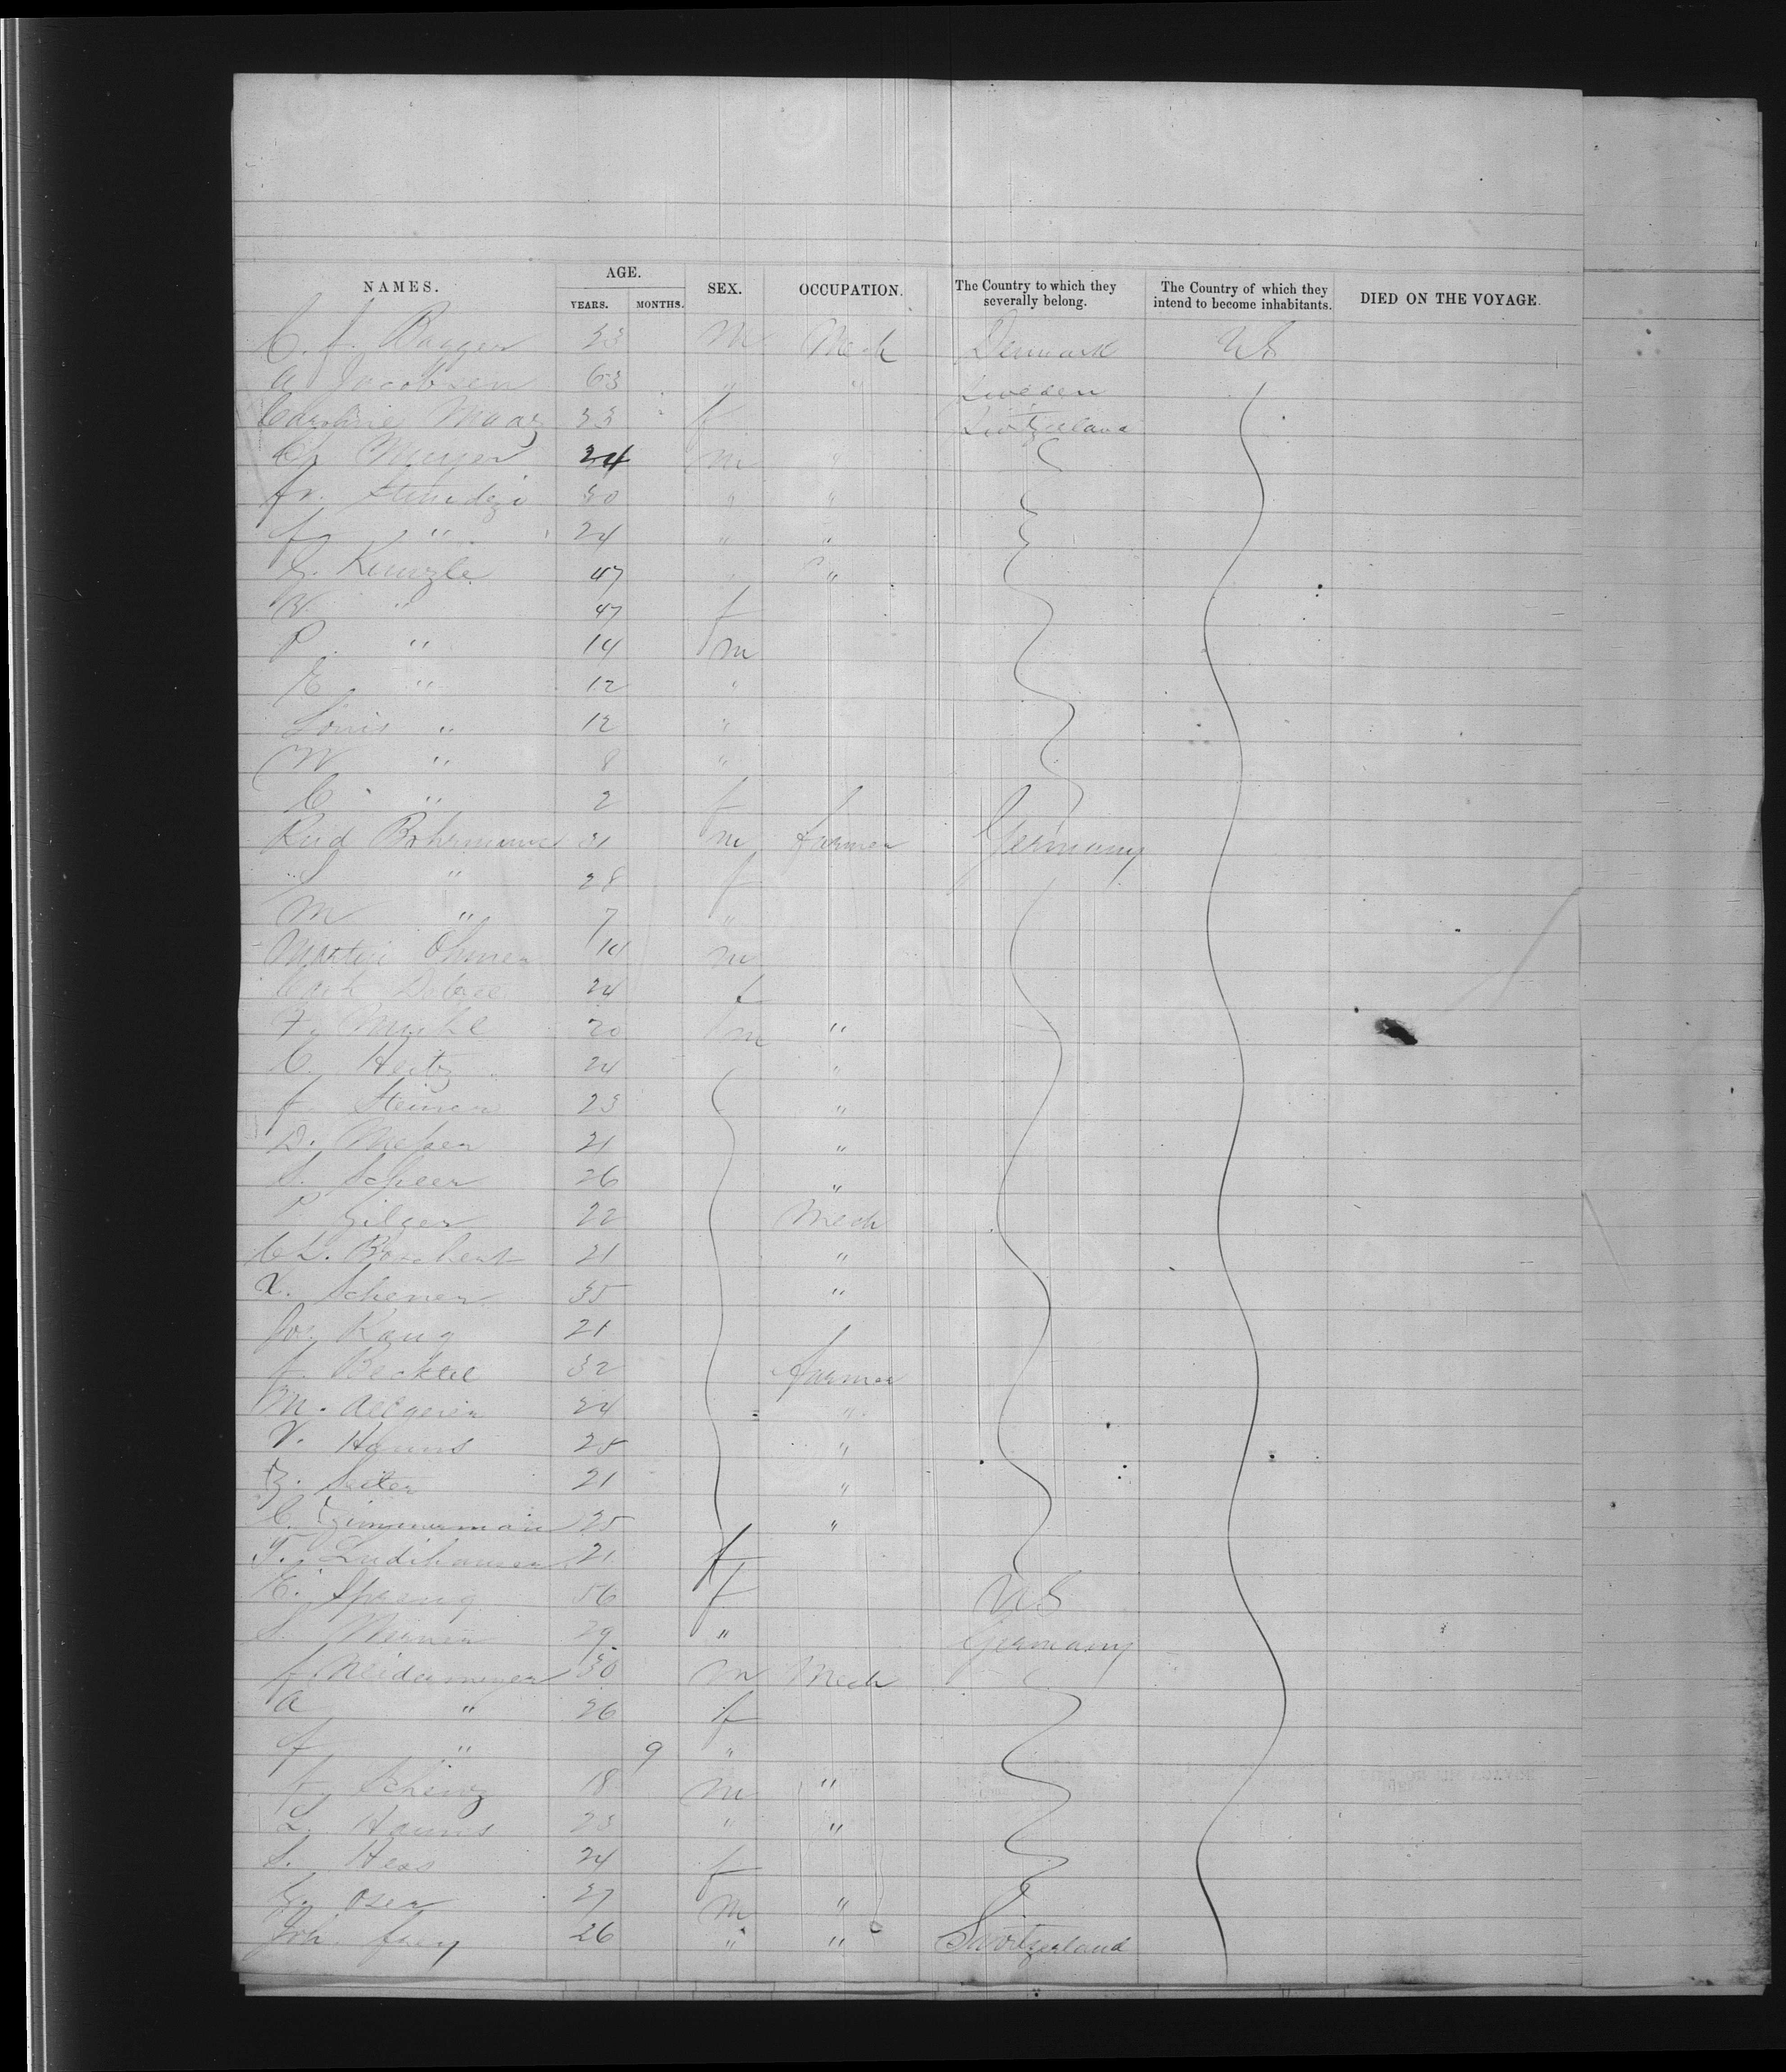 NAMES. AGE. SEX. OCCUPATION. The Country to which they severally belong. The Country of which they intend to become inhabitants. DIED ON THE VOYAGE.
YEARS. MONTHS.
C. f. Bagger 33 m Mech Denmark US
A Jacobsen 63 " " Sweden
Caroline Maag 33 f Switzerland
Ch Meyer 24 m "
fr. 30 " "
f " 24 " "
G. Kunzle 47 " "
W " 47 f
P " 14 m
E " 12 "
Louis " 12 "
W " 8 "
C " 2 f
Rud Bohrmann 31 m farmer Germany
" 28 f
M " 7 "
Martin Ohmer 14 m
24 f
F. Muhl 20 m "
C. Heitz 24 "
f Steiner 23 "
D. Messer 21 "
S. Scheer 26 "
P Gilger 22 Mech
C L. Borchert 21 "
X. Scherrer 35 "
Jos. Kaug 21
f. Bechtel 32 farmer
M. Allgeier 24 "
V. Hanns 25 "
G. Seiter 21 "
C. Zimmerman 25 "
T. 21 f
E. Spreng 56 f US
S. 29 " Germany
f Neidermeyer 30 m Mech
A " 26 f
f " 9 "
f Schenz 18 m "
L. Hanns 23 " "
S. Hess 24 f
G. Oser 27 m "
Joh. frey 26 " " Switzerland